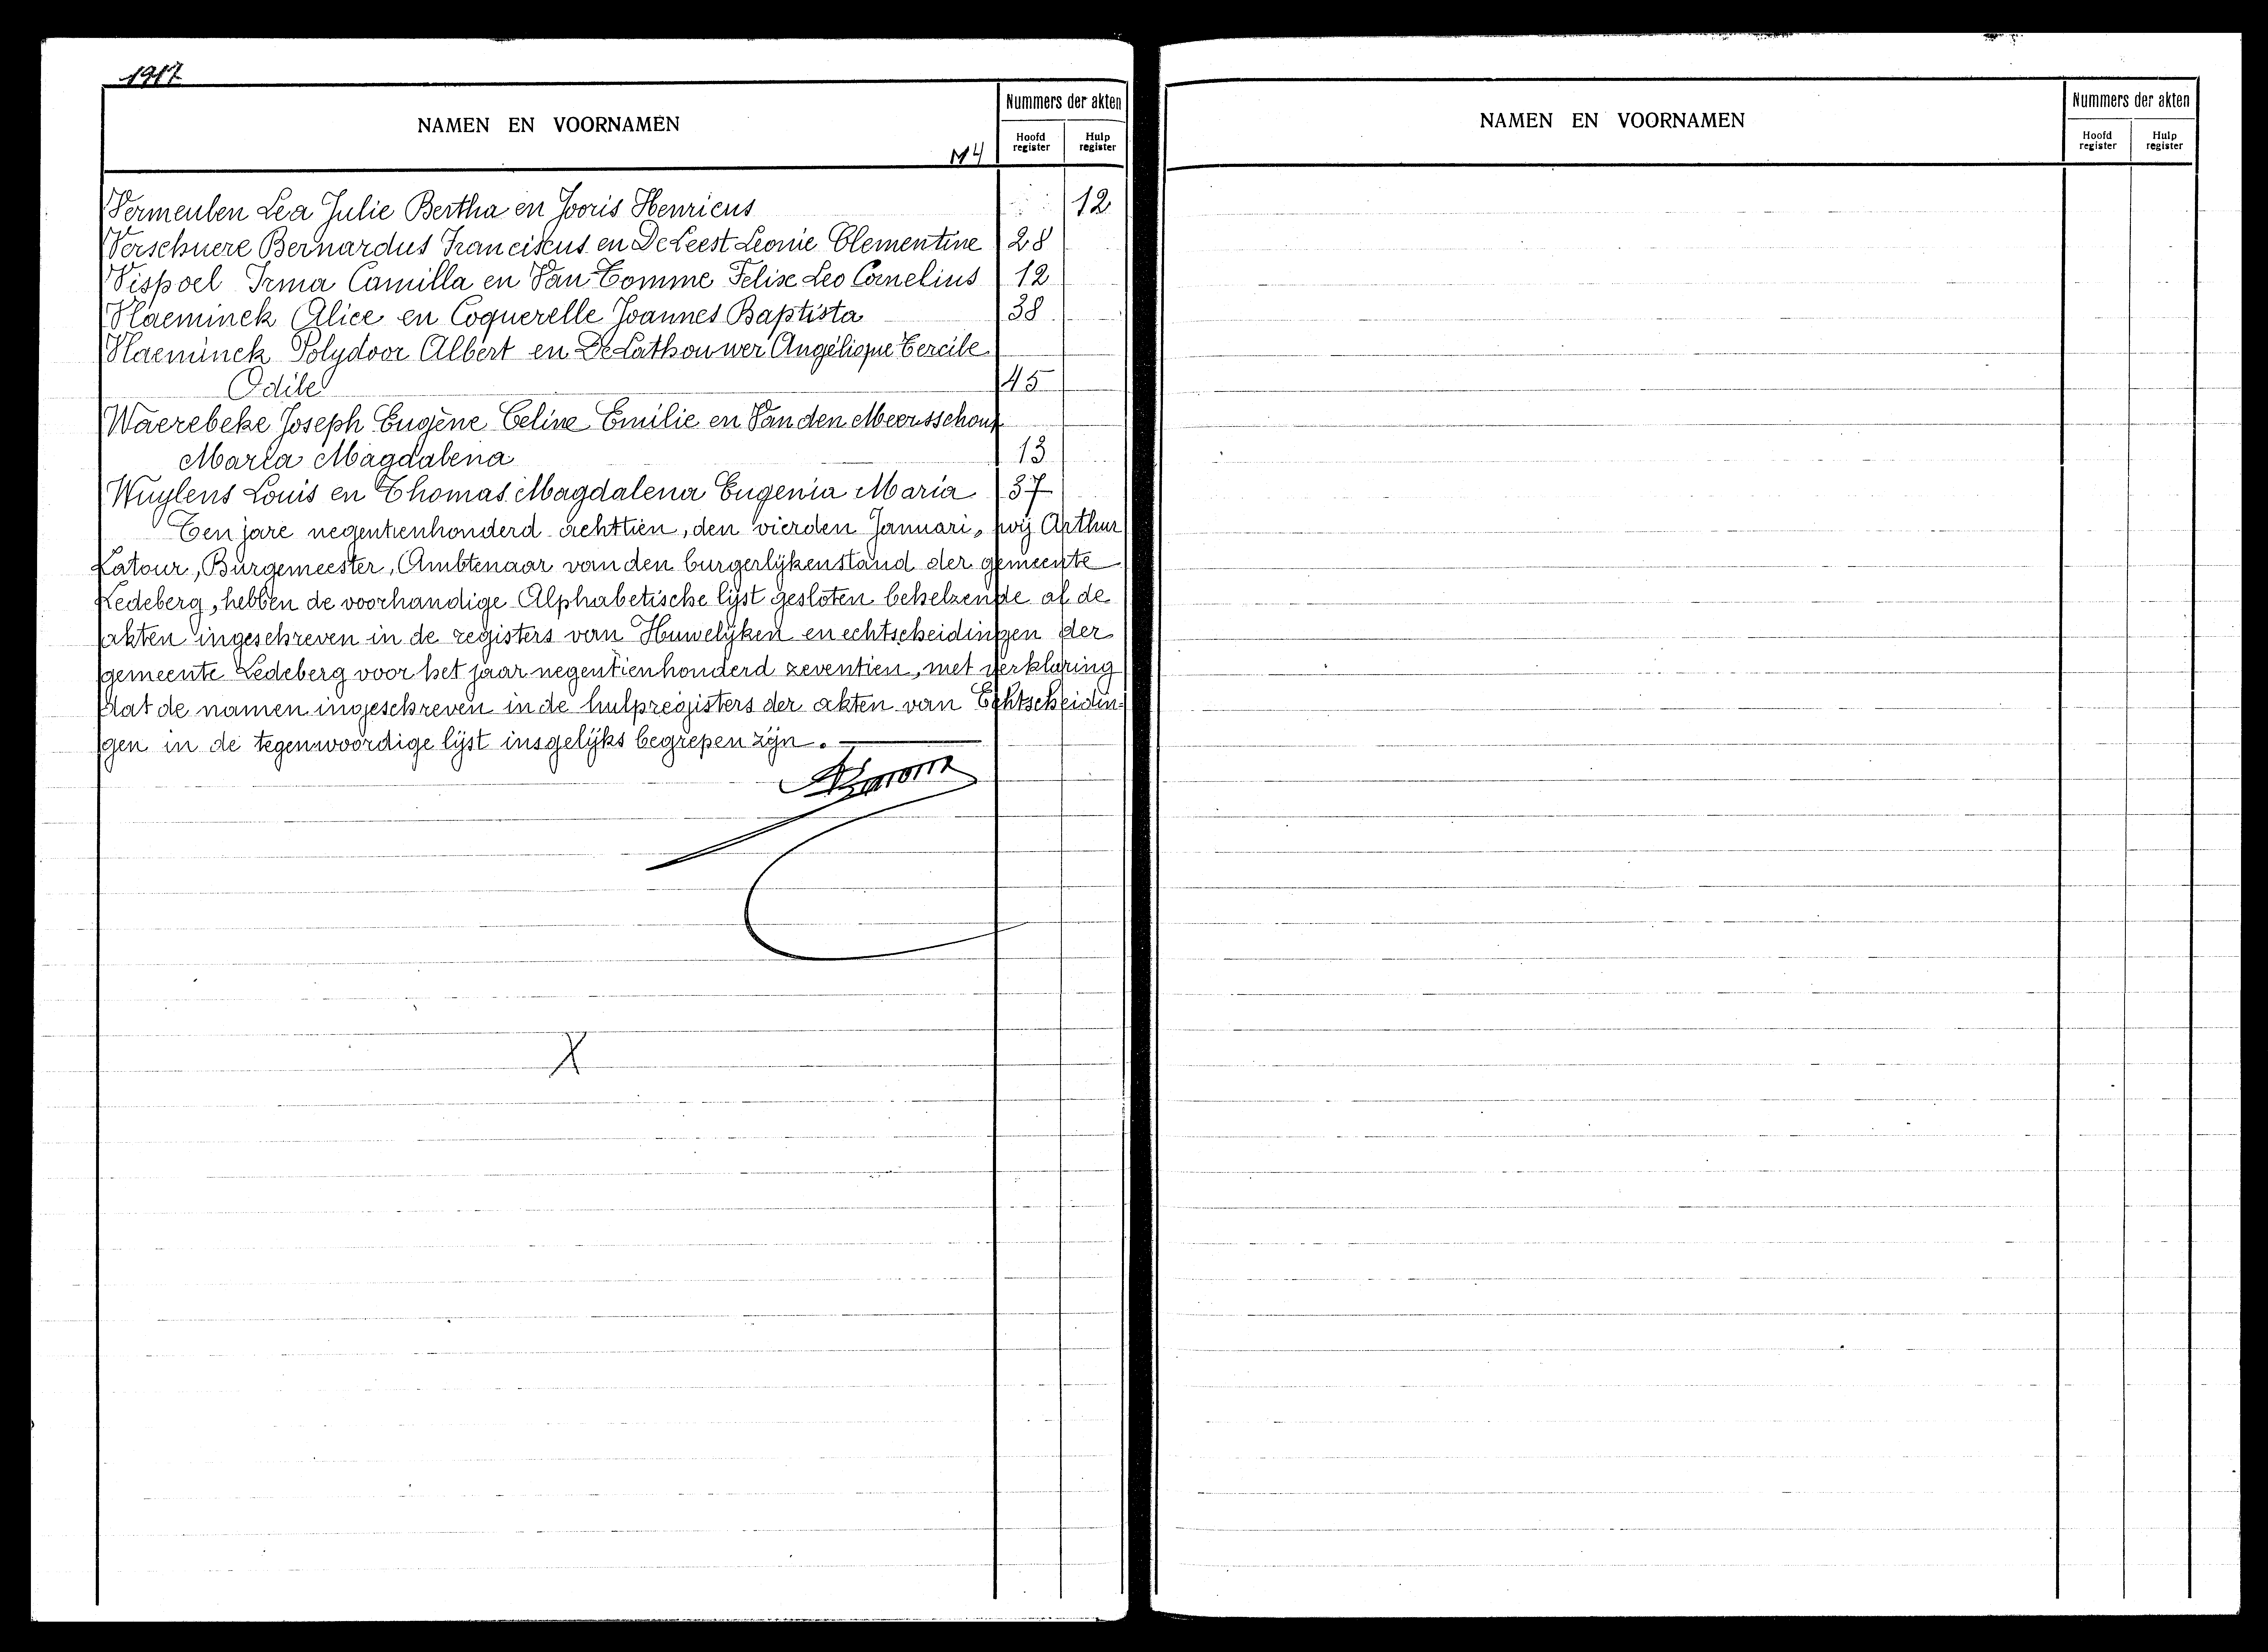 1917
NAMEN EN VOORNAMEN
M4
Nummers der akten
Hoofd register
Hulp register
Vermeulen Lea Julie Bertha en Jooris Henricus 12
Verschuere Bernardus Franciscus en De Leest Leonie Clementine 28
Vispoel Irma Camilla en Van Tomme Felix Leo Cornelius 12
Vlaeminck Alice en Coquerelle Joannes Baptista 38
Vlaeminck Polydoor Albert en De Lathouwer Angélique Cercile
Odile 45
Waerebeke Joseph Eugène Celine Emilie en Van den Meersschout
Maria Magdalena 13
Wuylens Louis en Thomas Magdalena Eugenia Maria 37
Ten jare negentienhonderd achttien, den vierden Januari, wij Arthur
Latour, Burgemeester, Ambtenaar van den burgerlijkenstand der gemeente
Ledeberg, hebben de voorhandige Alphabetische lijst gesloten behelzende al de
akten ingeschreven in de registers van Huwelijken en echtscheidingen der
gemeente Ledeberg voor het jaar negentienhonderd zeventien, met verklaring
dat de namen ingeschreven in de hulpregisters der akten van Echtscheidin=
gen in de tegenwoordige lijst insgelijks begrepen zijn.
X
NAMEN EN VOORNAMEN
Nummers der akten
Hoofd register
Hulp register